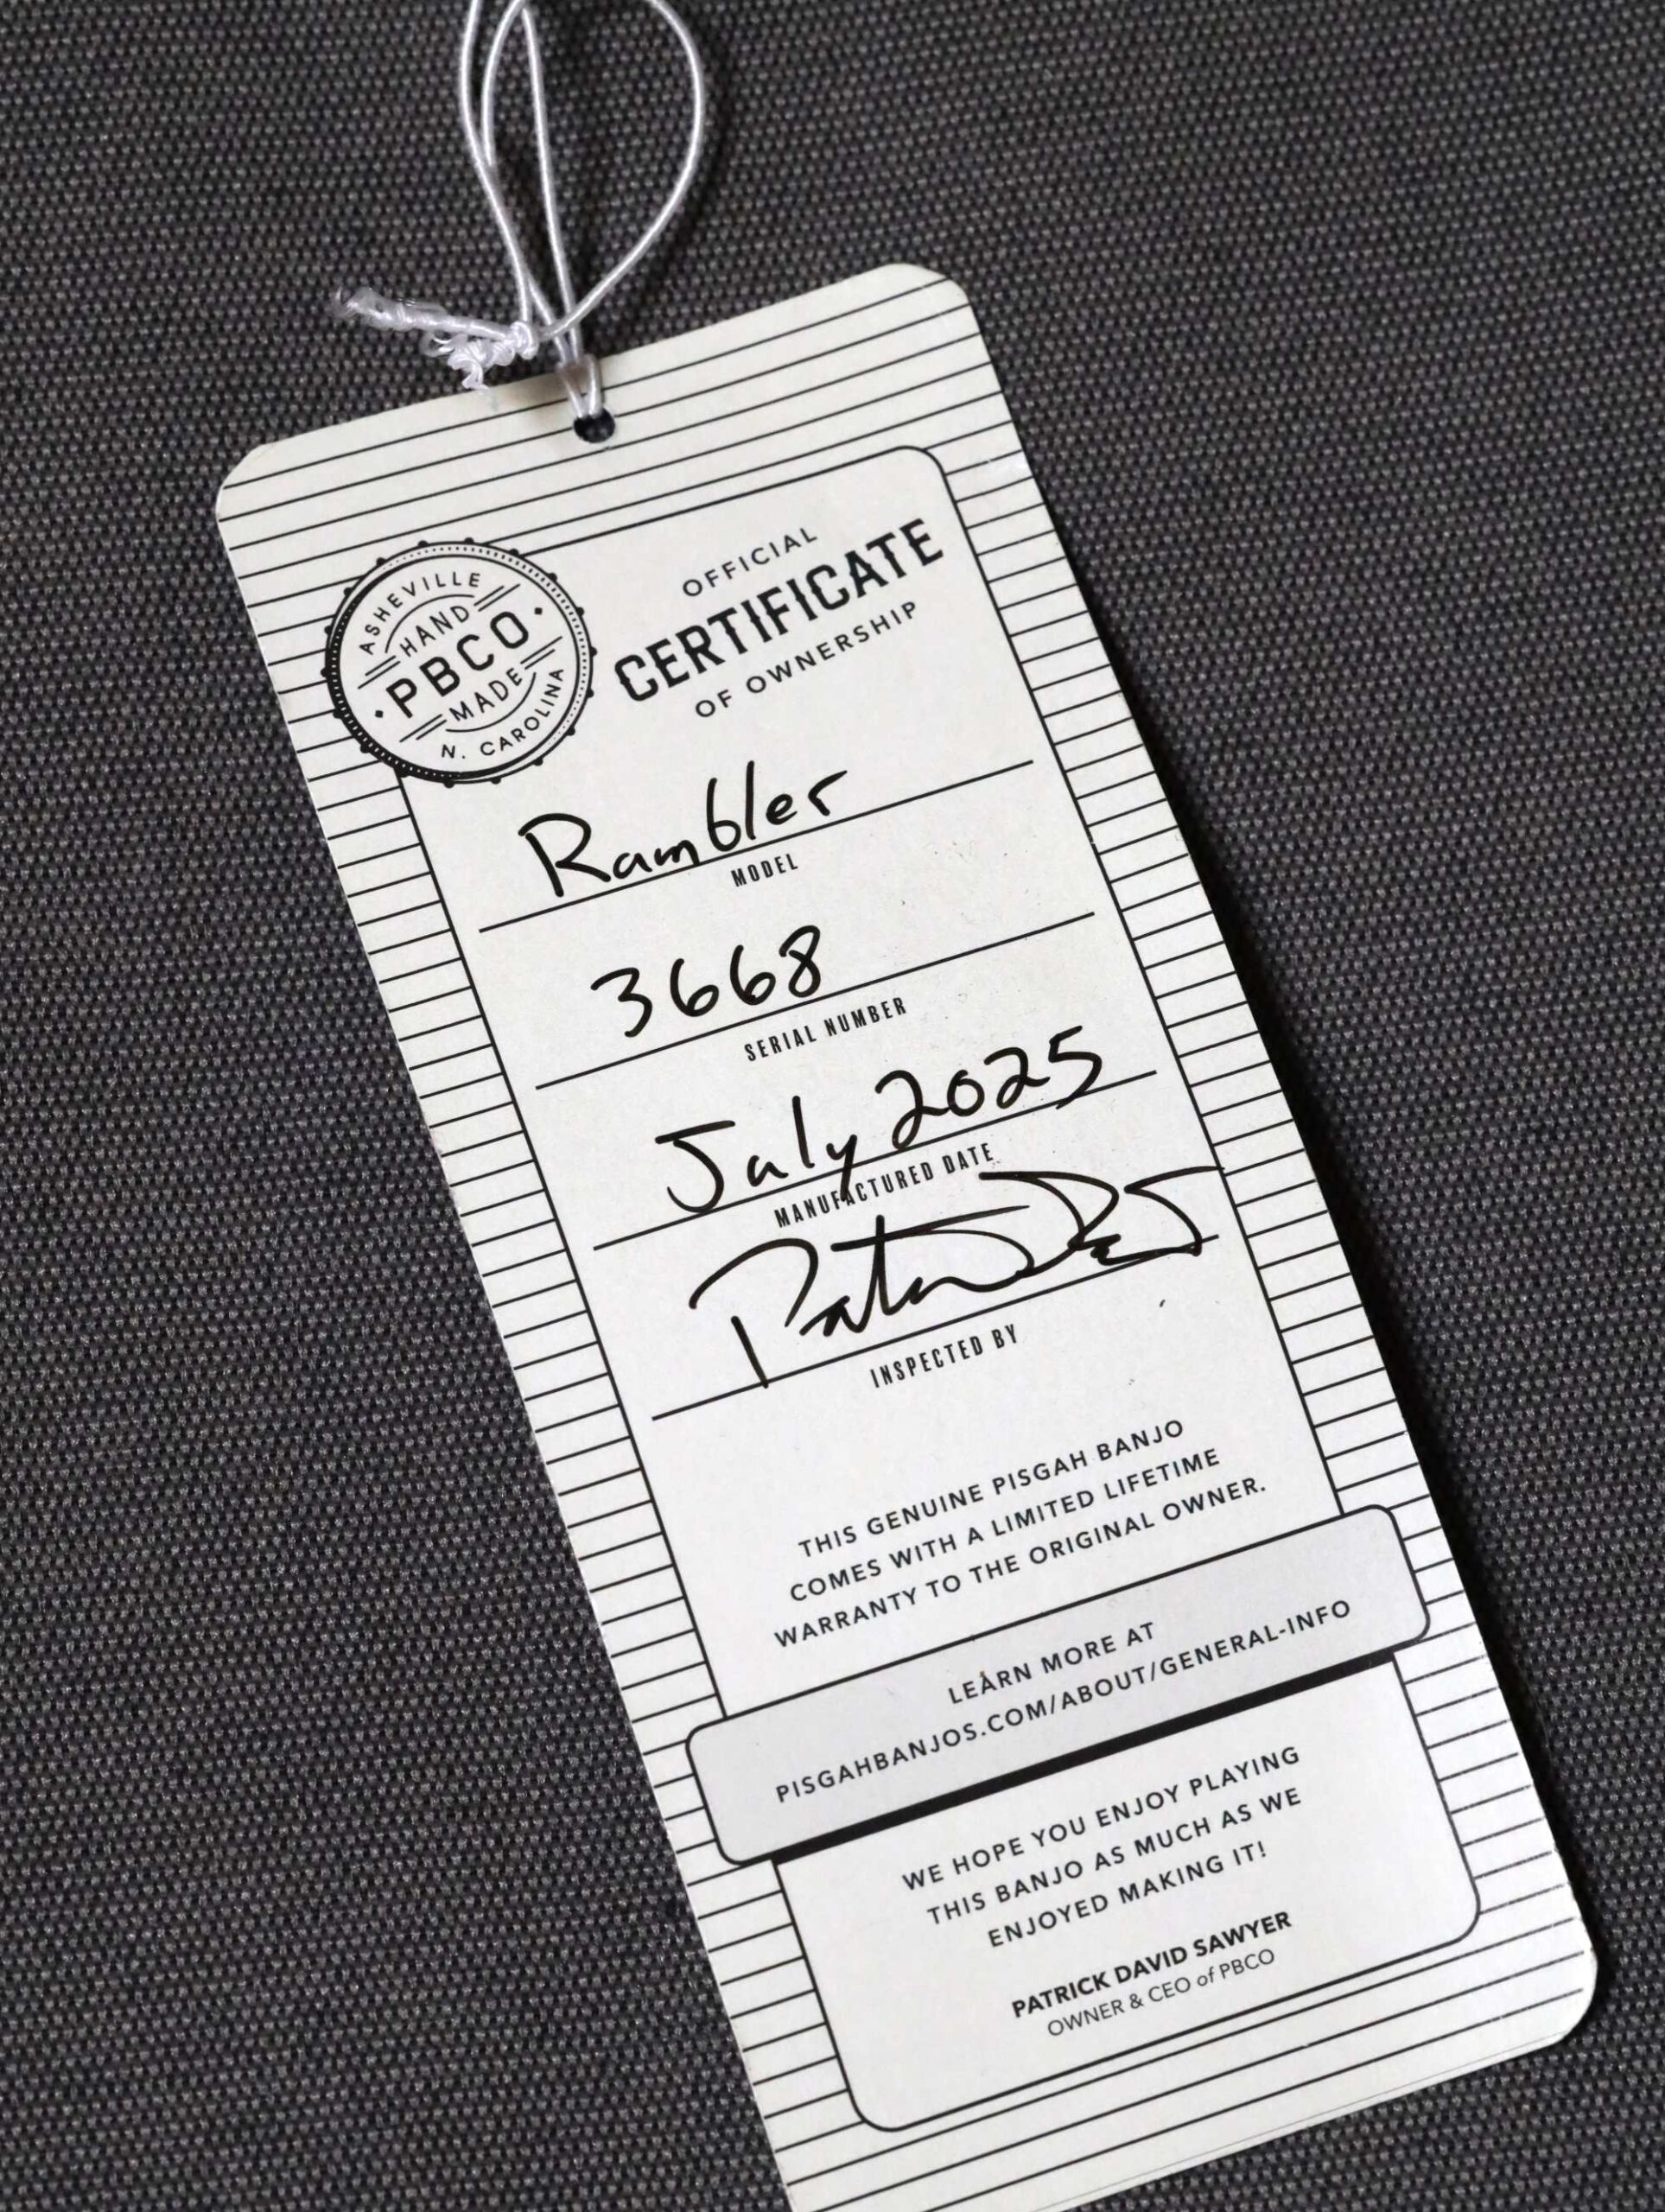 ASHEVILLE
HAND
PBCO
MADE
N. CAROLINA
OFFICIAL
CERTIFICATE
OF OWNERSHIP
Rambler
MODEL
3668
SERIAL NUMBER
July 2025
MANUFACTURED DATE
INSPECTED BY
THIS GENUINE PISGAH BANJO
COMES WITH A LIMITED LIFETIME
WARRANTY TO THE ORIGINAL OWNER.
LEARN MORE AT
PISGAHBANJOS.COM/ABOUT/GENERAL-INFO
WE HOPE YOU ENJOY PLAYING
THIS BANJO AS MUCH AS WE
ENJOYED MAKING IT!
PATRICK DAVID SAWYER
OWNER & CEO of PBCO